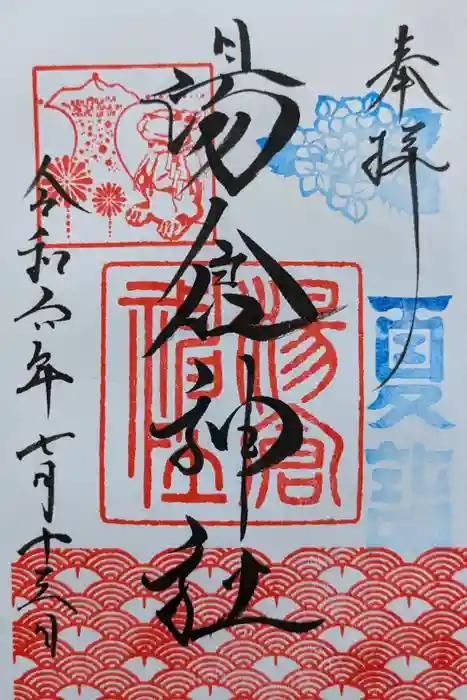 奉拝
夏詣
湯倉神社
湯倉神社
令和六年七月十三日